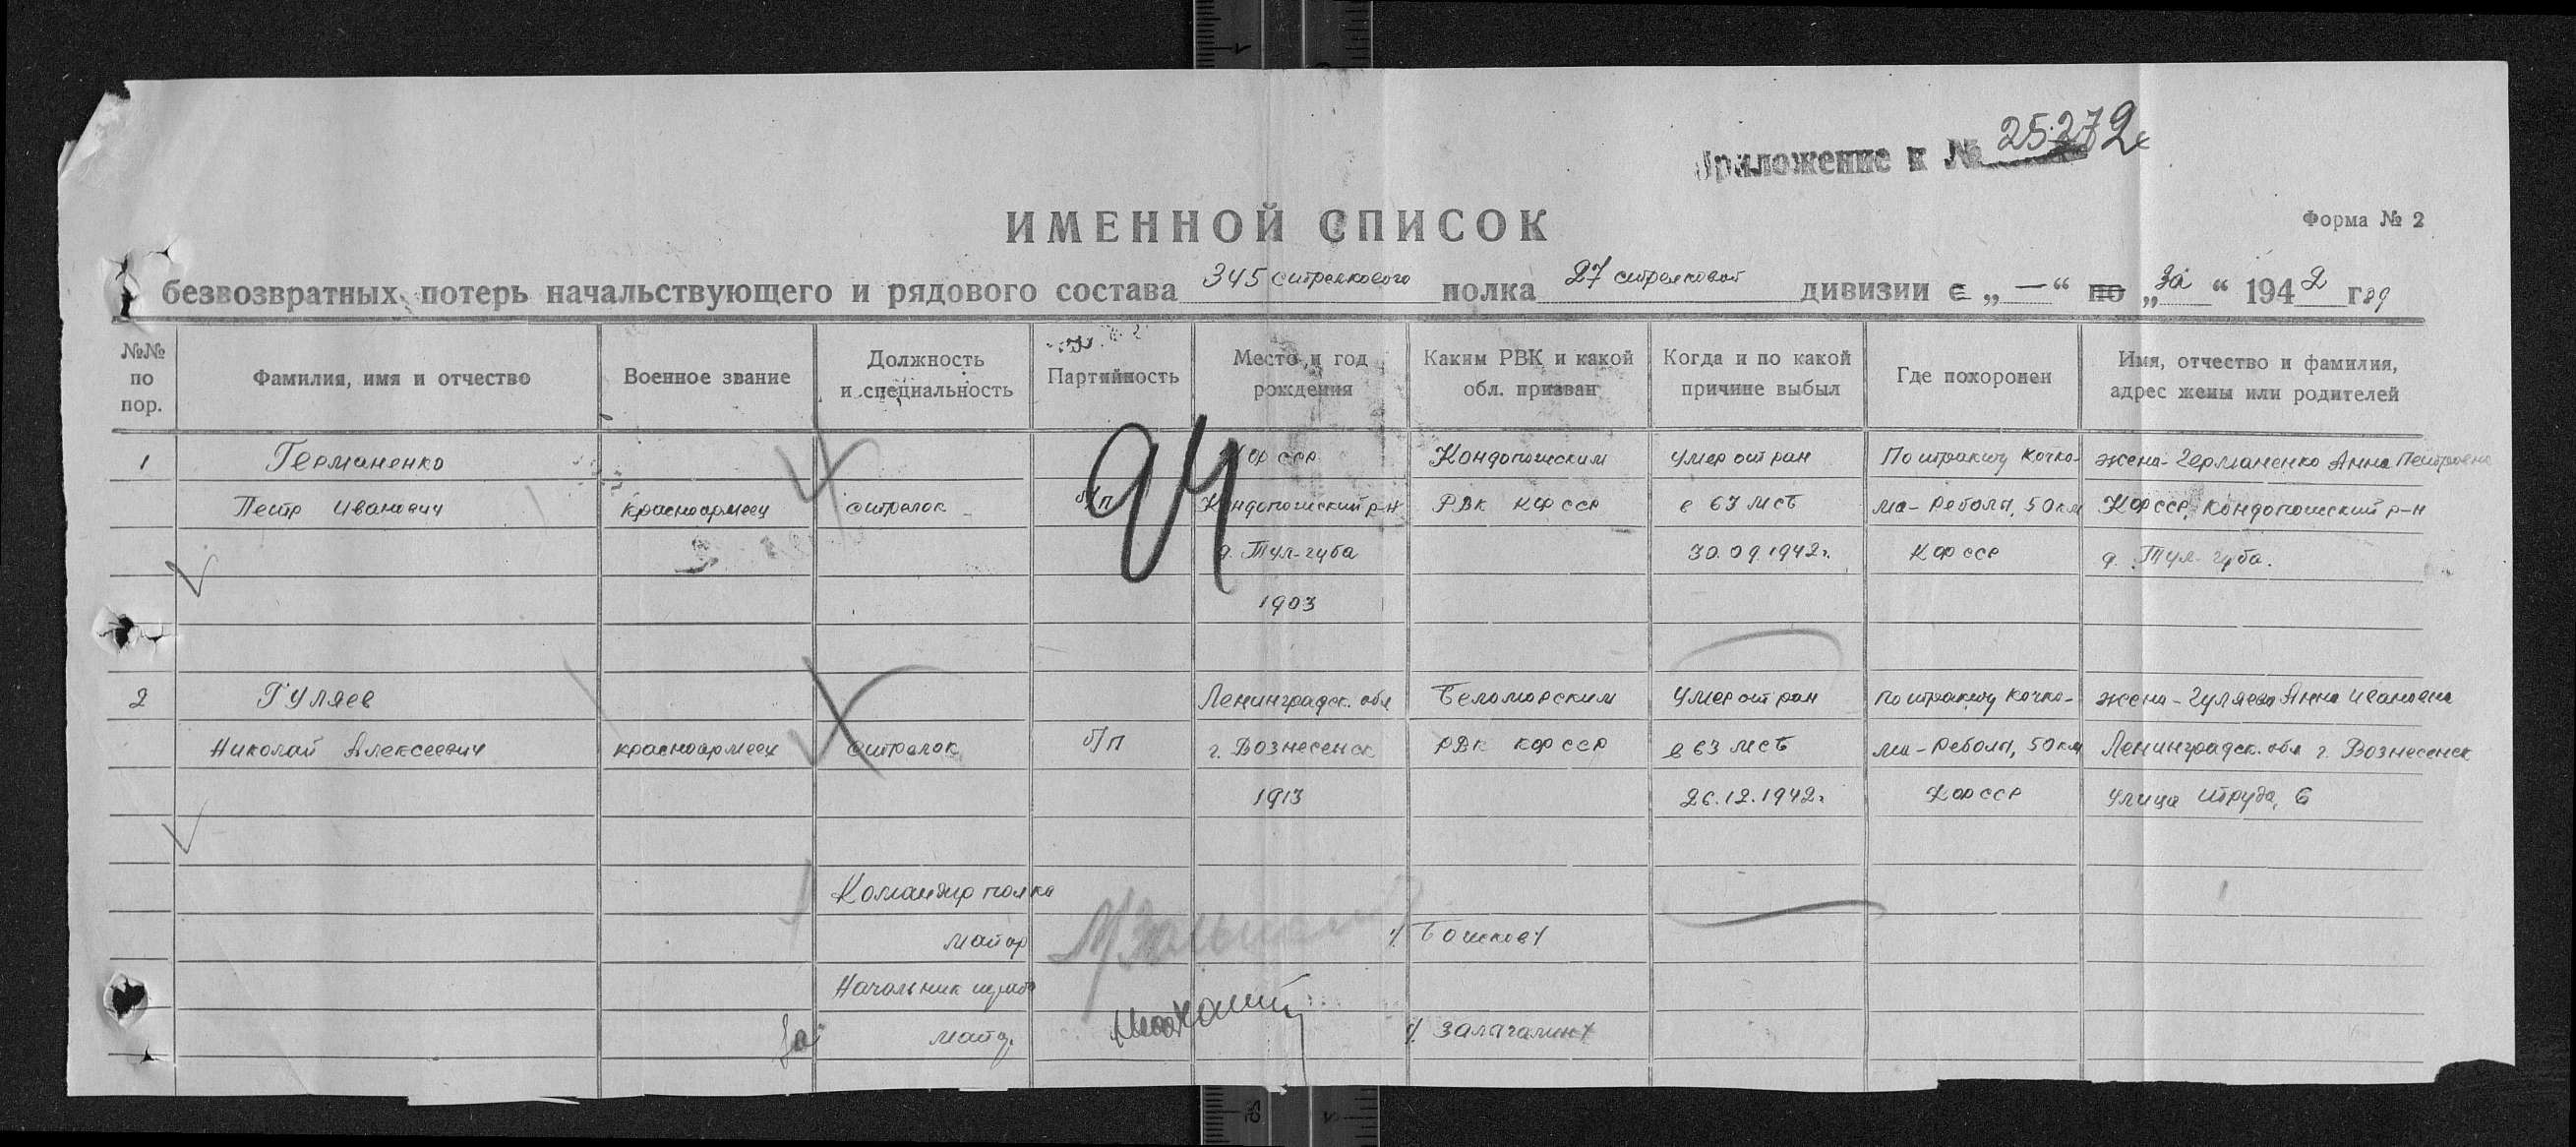 Приложение к № 25272
ИМЕННОЙ СПИСОК
Форма № 2
безвозвратных потерь начальствующего и рядового состава 345 стрелкового полка 27 стрелковой дивизии с „ — “ по „ за “ 1942 год
№№ по пор.
Фамилия, имя и отчество
Военное звание
Должность и специальность
Партийность
Место и год рождения
Каким РВК и какой обл. призван
Когда и по какой причине выбыл
Где похоронен
Имя, отчество и фамилия, адрес жены или родителей
94
1 Германенко КФССР Кондопожским умер от ран По тракту Кочко- жена-Германенко Анна Петровна
Петр Иванович красноармеец стрелок б/п Кондопожский р-н РВК КФССР в 63 МСБ ма-Реболы, 50 км КФССР, Кондопожский р-н
д. Тул-губа 30.09.1942г. КФССР д. Тул-губа.
1903
2 Гуляев Ленинградск. обл Беломорским умер от ран По тракту Кочко- жена-Гуляева Анна Ивановна
Николай Алексеевич красноармеец стрелок б/п г. Вознесенск РВК КФССР в 63 МСБ ма-Реболы, 50 км Ленинградск. обл г. Вознесенск
1913 26.12.1942г КФССР улица Труда, 6
Командир полка
майор / Бошков /
Начальник штаба
за майор